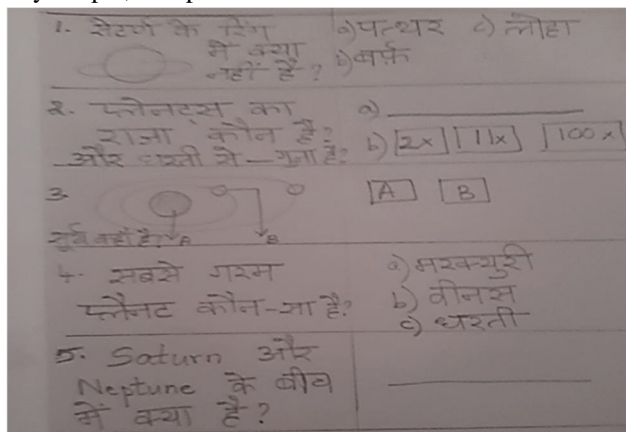 1. सैटर्न के रिंग में क्या नहीं है?
a) पत्थर c) लोहा
b) बर्फ़
2. प्लेनेट्स का राजा कौन है?
और धरती से — गुना है?
a)
b) 2x 11x 100x
3.
A B
सूर्य कहाँ है? A B
4. सबसे गरम
प्लैनेट कौन-सा है?
a) मरक्युरी
b) वीनस
c) धरती
5. Saturn और
Neptune के बीच
में क्या है?